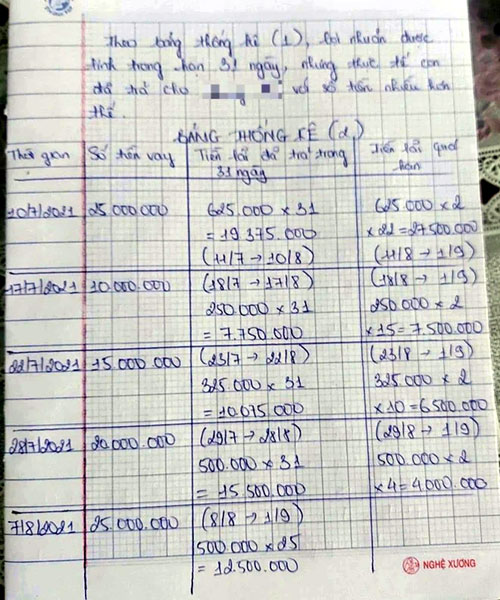 Theo bảng thống kê (1), lợi nhuận được
tính trong hạn 31 ngày, nhưng thực tế con
đã trả cho g với số tiền nhiều hơn
thế.
BẢNG THỐNG KÊ (2)
Thời gian Số tiền vay Tiền lãi đã trả trong Tiền lãi quá
31 ngày hạn
10/7/2021 25.000.000 625.000 x 31 625.000 x 2
= 19 375.000 x 22 = 27 500.000
(11/7 → 10/8) (11/8 → 1/9)
17/7/2021 10.000.000 (18/7 → 17/8) (18/8 → 1/9)
250.000 x 31 250.000 x 2
= 7.750.000 x 15 = 7.500.000
22/7/2021 15.000.000 (23/7 → 22/8) (23/8 → 1/9)
325.000 x 31 325.000 x 2
= 10.075.000 x 10 = 6.500.000
28/7/2021 20.000.000 (29/7 → 28/8) (29/8 → 1/9)
500.000 x 31 500.000 x 2
= 15.500.000 x 4 = 4.000.000
7/8/2021 25.000.000 (8/8 → 1/9)
500.000 x 25
= 12.500.000
NGHỆ XƯƠNG